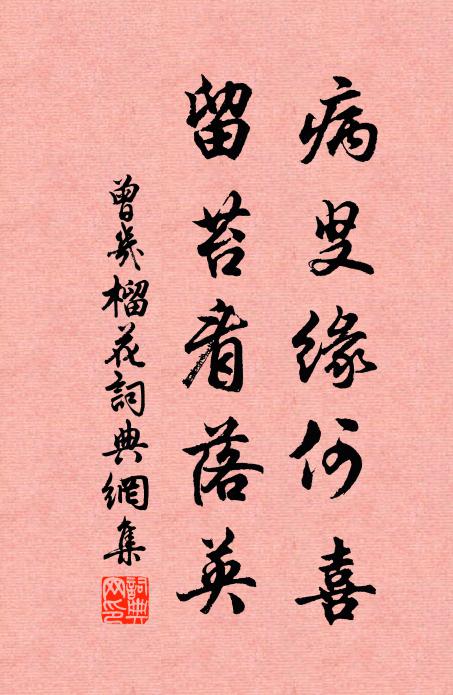 病叟缘何喜
留苔看落英
曾幾榴花詞典網集
詞典網印